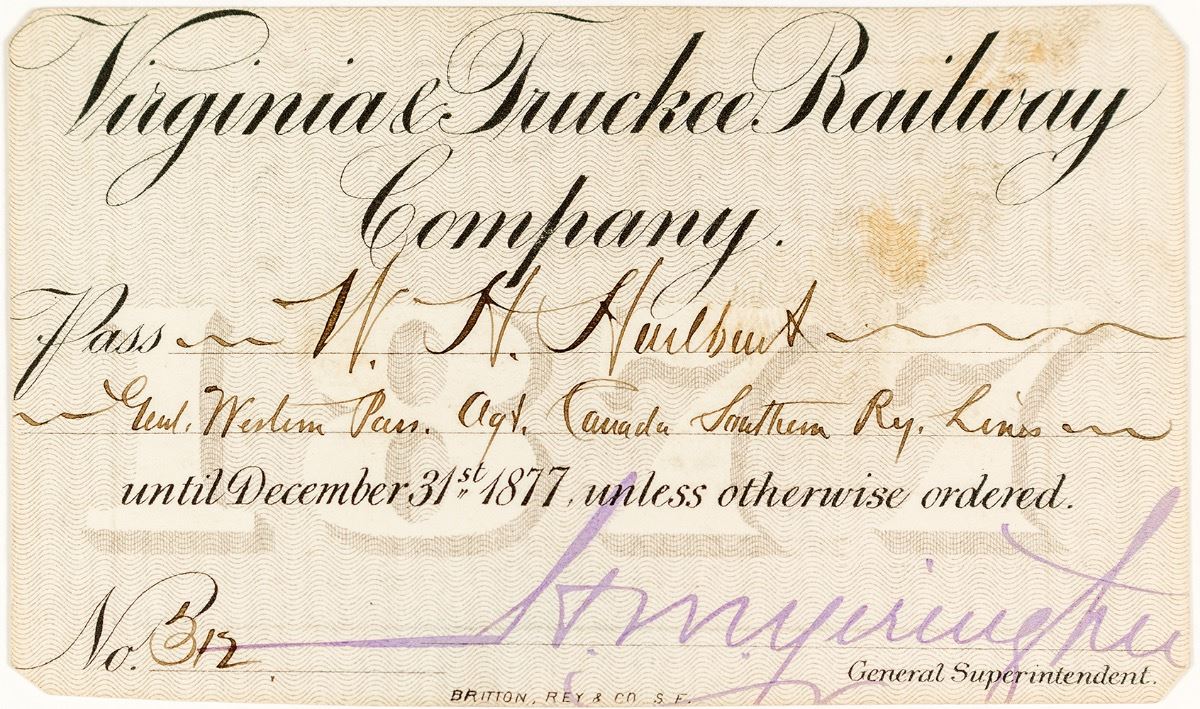 Virginia & Truckee Railway
Company.
Pass W. H. Hurlburt
Genl. Western Pass. Agt. Canada Southern Ry. Lines
until December 31st 1877, unless otherwise ordered.
1877
H. M. Yerington
No. B12
General Superintendent.
BRITTON, REY & CO. S. F.